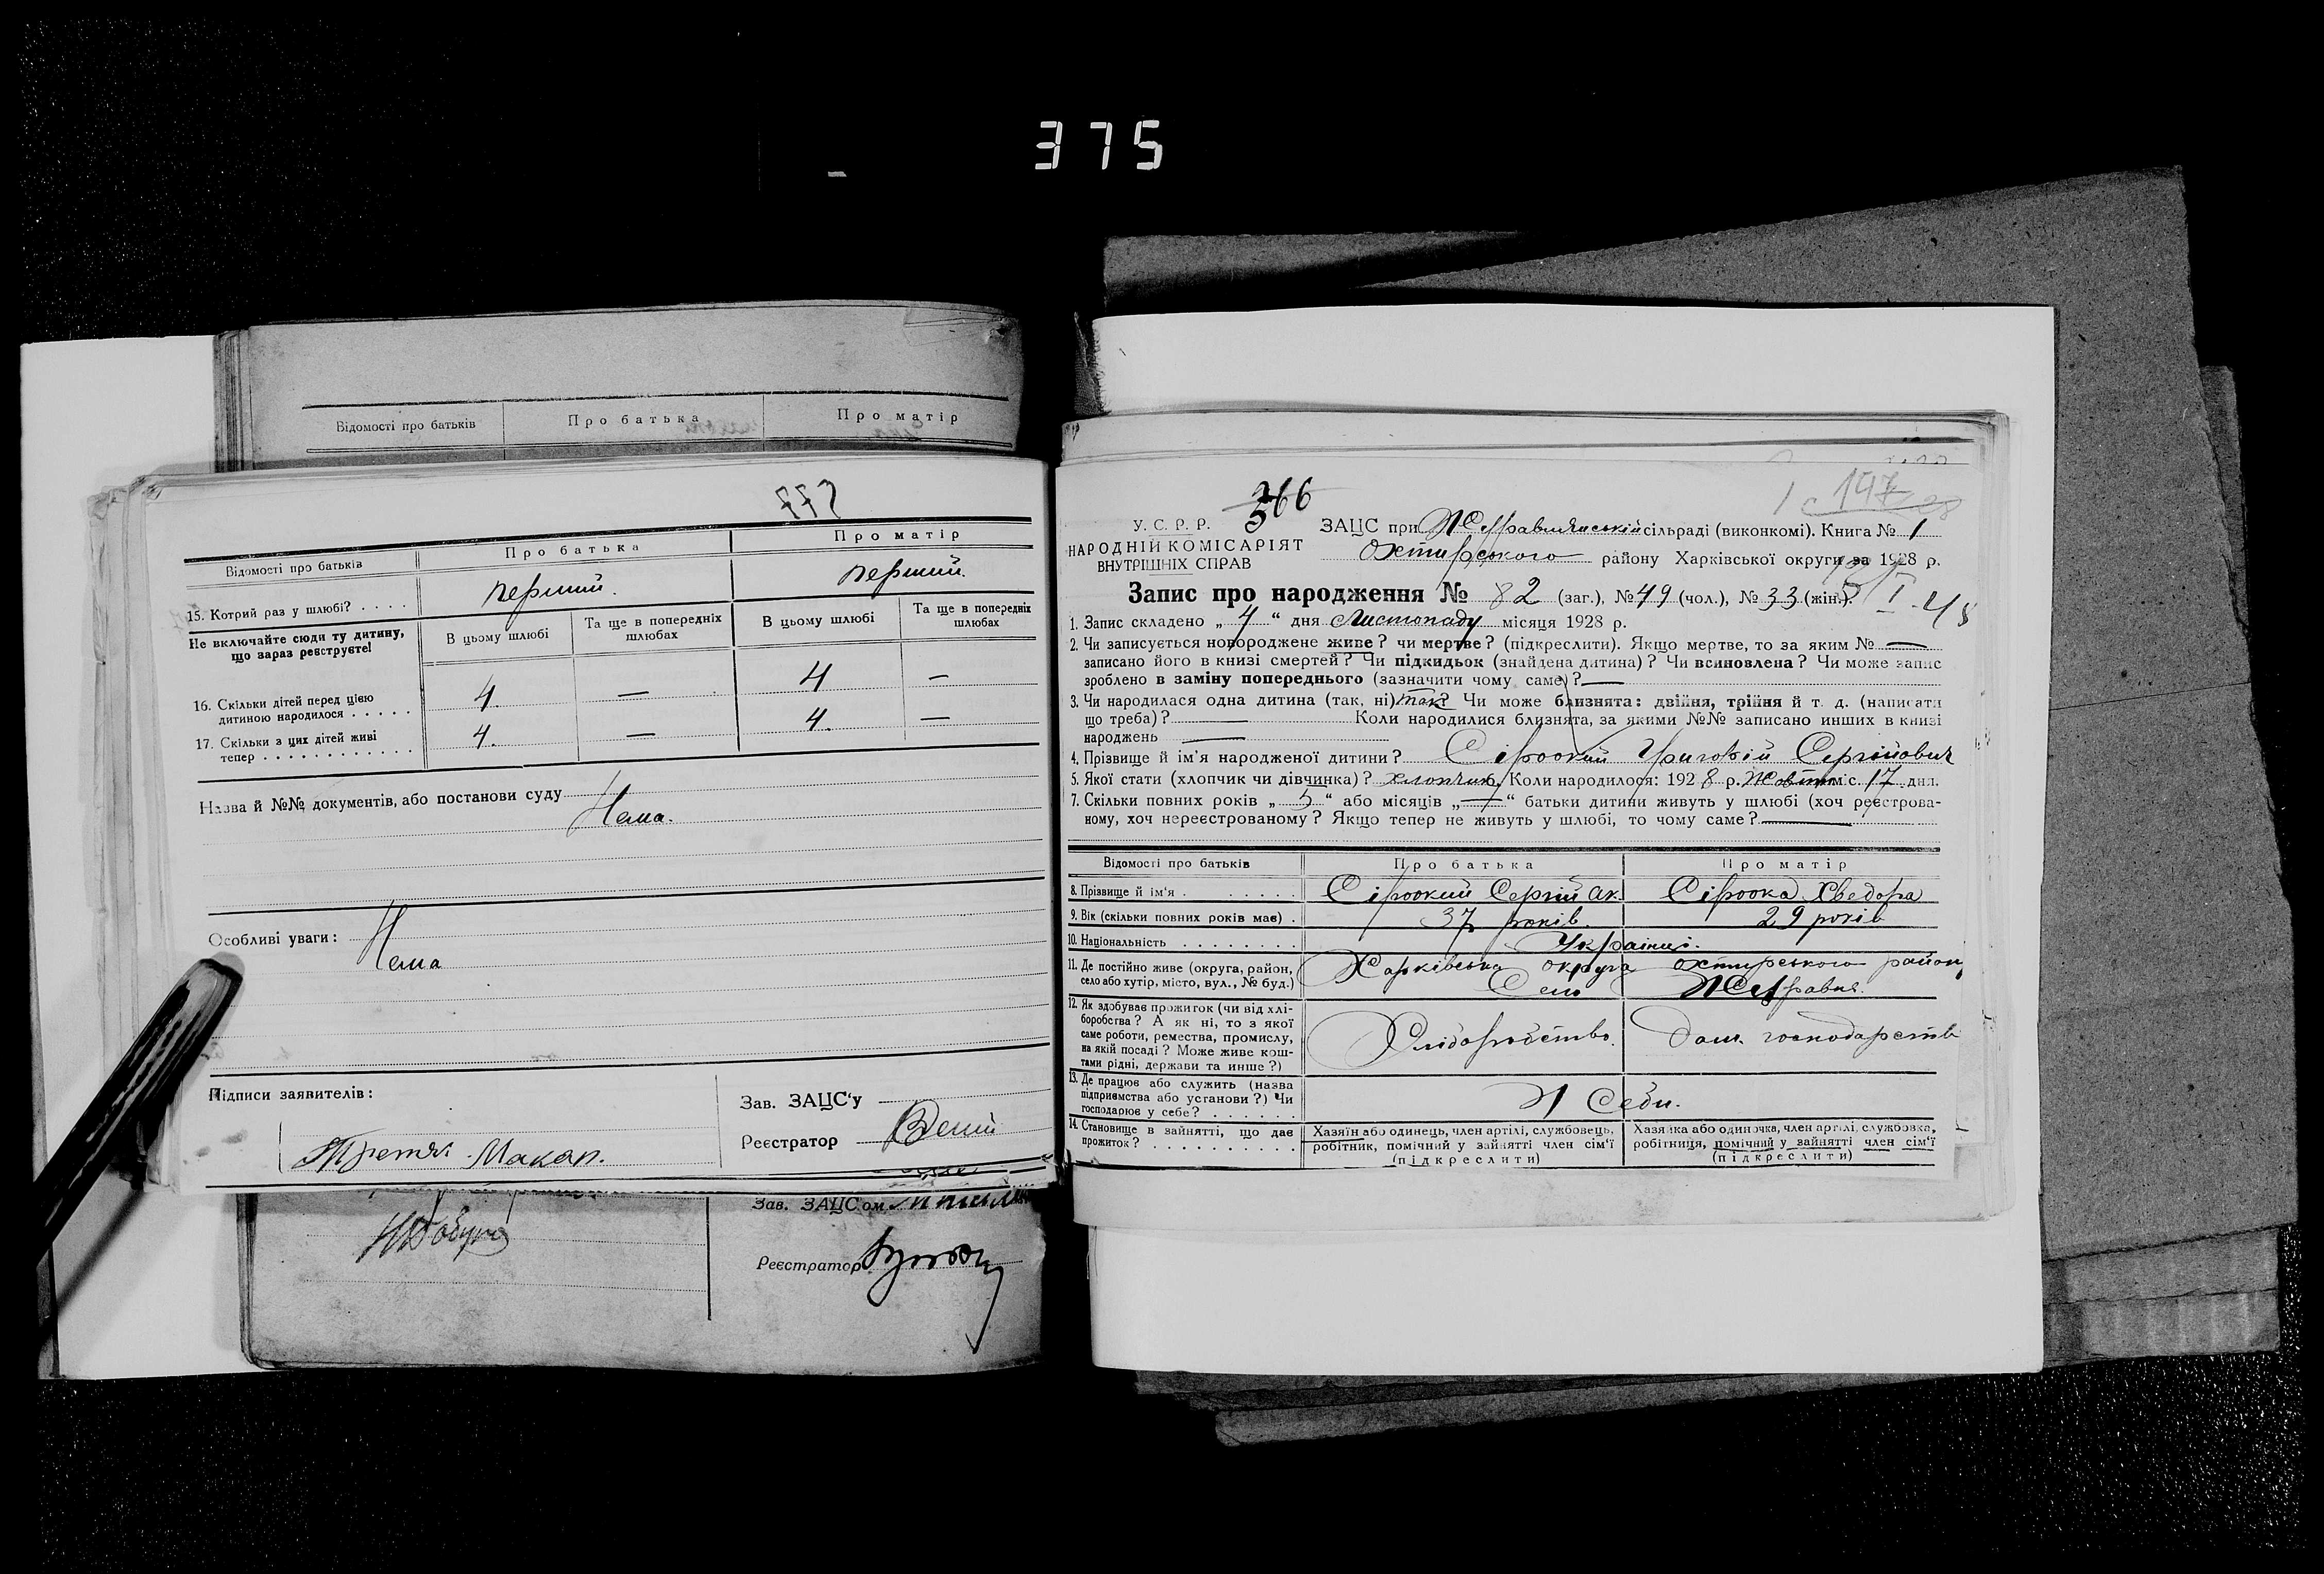 375
Відомості про батьків Про батька Про матір
Відомості про батьків Про батька Про матір
15. Котрий раз у шлюбі? . . . . перший. перший.
Не включайте сюди ту дитину, що зараз реєструєте! В цьому шлюбі Та ще в попередніх шлюбах В цьому шлюбі Та ще в попередніх шлюбах
16. Скільки дітей перед цією
дитиною народилося . . . . . 4. — 4 —
17. Скільки з цих дітей живі
тепер . . . . . . . . . . . . 4. — 4. —
Назва й №№ документів, або постанови суду
Нема.
Особливі уваги: Нема
Підписи заявителів:
Макар.
Зав. ЗАЦС'у
Реєстратор
Зав. ЗАЦС'ом
Реєстратор
366
147
У. С. Р. Р.
НАРОДНІЙ КОМІСАРІЯТ
ВНУТРІШНІХ СПРАВ
ЗАЦС при сільраді (виконкомі). Книга № 1
Охтирського району Харківської округи за 1928 р.
Запис про народження № 82 (заг.), № 49 (чол.), № 33 (жін.).
1. Запис складено „ 4 “ дня Листопаду місяця 1928 р.
2. Чи записується новороджене живе? чи мертве? (підкреслити). Якщо мертве, то за яким № —
записано його в книзі смертей? Чи підкидьок (знайдена дитина)? Чи всиновлена? Чи може запис
зроблено в заміну попереднього (зазначити чому саме)? —
3. Чи народилася одна дитина (так, ні) так? Чи може близнята: двійня, трійня й т. д. (написати
що треба)? — Коли народилися близнята, за якими №№ записано инших в книзі
народжень —
4. Прізвище й ім'я народженої дитини? Сіроокий Григорій Сергійович
5. Якої стати (хлопчик чи дівчинка)? хлопчик. Коли народилося: 1928 р. Жовтн міс. 17 дня.
7. Скільки повних років „ 5 “ або місяців „ — “ батьки дитини живуть у шлюбі (хоч реєстрова-
ному, хоч нереєстрованому? Якщо тепер не живуть у шлюбі, то чому саме? —
Відомості про батьків Про батька Про матір
8. Прізвище й ім'я . . . . . . Сіроокий Сергій Ак. Сіроока Хведора
9. Вік (скільки повних років має) . 37 років. 29 років
10. Національність . . . . . . . . Українці.
11. Де постійно живе (округа, район,
село або хутір, місто, вул., № буд.) Харківська округа охтирського району
Село Журавне.
12. Як здобуває прожиток (чи від хлі-
боробства? А як ні, то з якої
саме роботи, ремества, промислу,
на якій посаді? Може живе кош-
тами рідні, держави та инше?) Хліборобство. Дом. господарств
13. Де працює або служить (назва
підприємства або установи?) Чи
господарює у себе? . . . . . . У Себи.
14. Становище в зайнятті, що дає
прожиток? . . . . . . . . . .
Хазяїн або одинець, член артілі, службовець,
робітник, помічний у зайнятті член сім'ї
(підкреслити)
Хазяйка або одиночка, член артілі, службовка,
робітниця, помічний у зайнятті член сім'ї
(підкреслити)